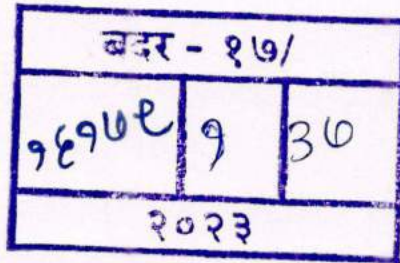 बदर - १७/
१६१७९ १ ३७
२०२३